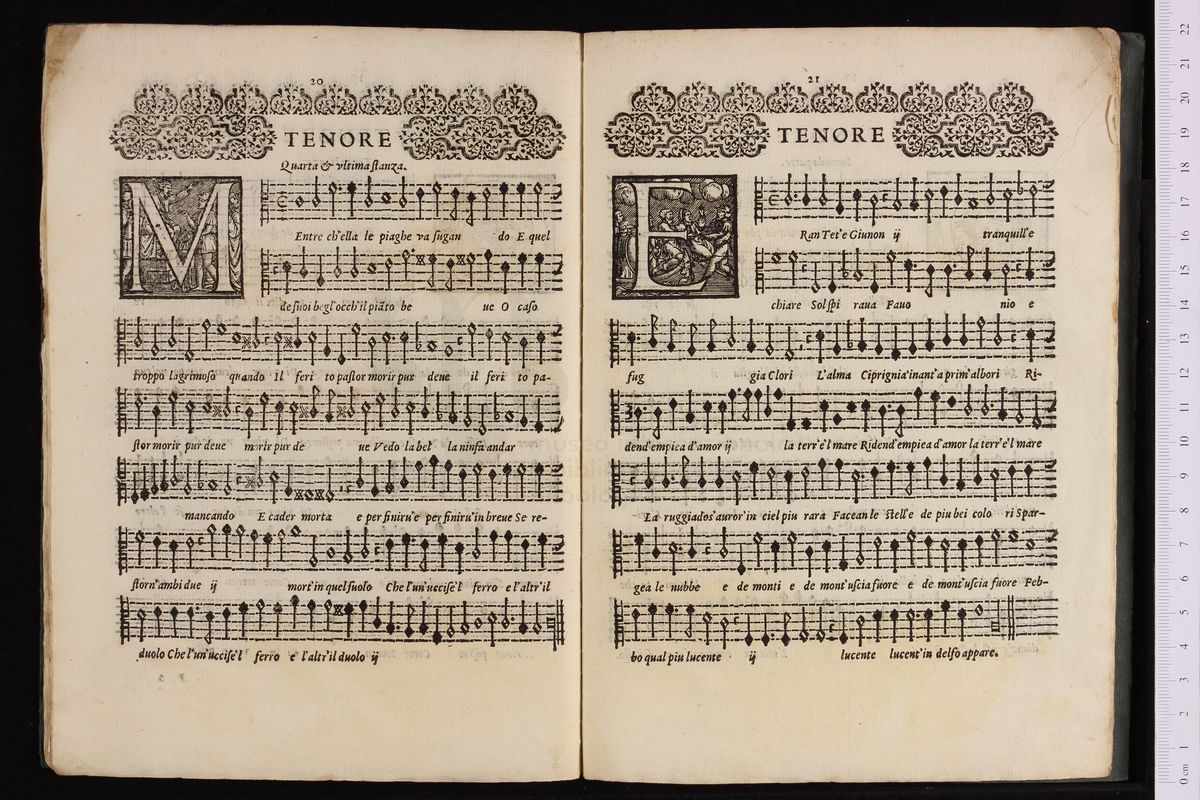 20
TENORE
Quarta & vltima ſtanza.
M Entre ch'ella le piaghe va ſugan do E quel
de ſuoi begl'occh'il piāto be ue O caſo
troppo lagrimoſo quando Il feri to paſtor morir pur deue il feri to pa-
ſtor morir pur deue morir pur de ue Vedo la bel la ninfa andar
mancando E cader morta e per finiru'e per finiru'in breue Se re-
ſtorn'ambi due ij mort'in quel ſuolo Che l'un'ucciſe'l ferro e l'altr'il
duolo Che l'un'ucciſe'l ferro e l'altr'il duolo ij
21
TENORE
E Ran Tet'e Giunon ij tranquill'e
chiare Sol ſpi raua Fauo nio e
fug gia Clori L'alma Ciprignia inant'a prim'albori Ri-
dend'empiea d'amor ij la terr'e'l mare Ridend'empiea d'amor la terr'e'l mare
La ruggiadoſ'auror'in ciel piu rara Facean le Stell'e de piu bei colo ri Spar-
gea le nubbe e de monti e de mont'uſcia fuore e de mont'uſcia fuore Feb-
bo qual piu lucente ij lucente lucent'in delfo appare.
museo
bibliot
22
21
20
19
18
17
16
15
14
13
12
11
10
9
8
7
6
5
4
3
2
1
0 cm